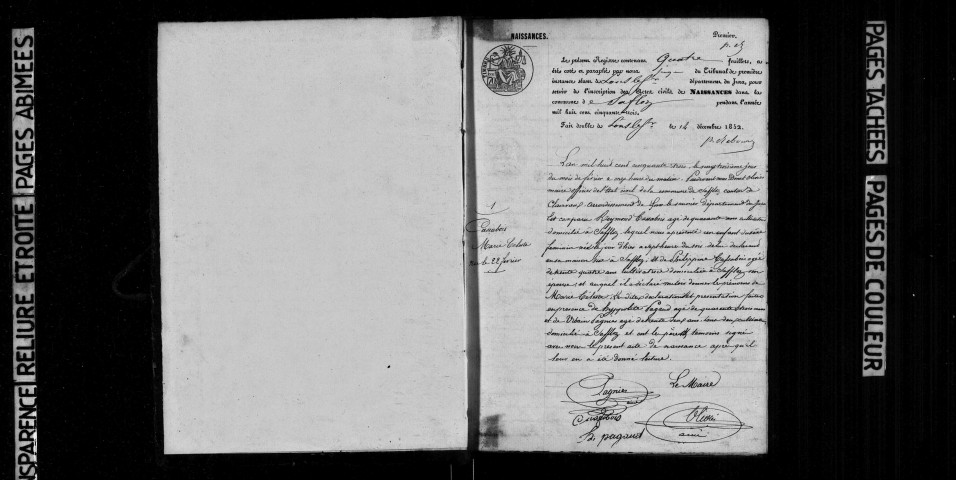 PAGES ABIMEES
RELIURE ETROITE
NSPARENCE
NAISSANCES.
Premier.
Le présent Registre contenant Quatre feuillets, a
été coté et paraphé par nous juge du Tribunal de première
instance séant de Lons le Sr département du Jura, pour
servir de l'inscription des Actes civils de NAISSANCES dans la
commune de Saffloz pendant l'année
mil huit cent cinquante-trois.
Fait double de Lons le Sr le 14 décembre 1852.
1
Marie Céleste
née le 22 février
L'an mil huit cent cinquante trois, le vingt troisième jour
du mois de février à onze heures du matin. Pardevant nous
maire officier de l'état civil de la commune de Saffloz canton de
Clairvaux arrondissement de Lons le saunier département du Jura
Est comparu agé de quarante ans
domicilié à Saffloz, lequel nous a présenté un enfant du sexe
féminin né le jour d'hier à sept heures du soir de lui déclarant
en sa maison à Saffloz, et de Philippine agée
de trente quatre ans domiciliée à Saffloz son
épouse; et auquel il a déclaré vouloir donner les prénoms de
Marie Céleste, Les dites déclaration et présentation faites
en présence de hyppolite Pagand agé de quarante trois ans
et de Urbain Pagnier agé de trente deux ans, tous deux
domicilié à Saffloz et ont le père et témoins signé
avec nous le présent acte de naissance après qu'il
leur en a été donné lecture.
Le Maire
Pagnier
h. pagand
ainé
PAGES TACHÉES
PAGES DE COULEUR